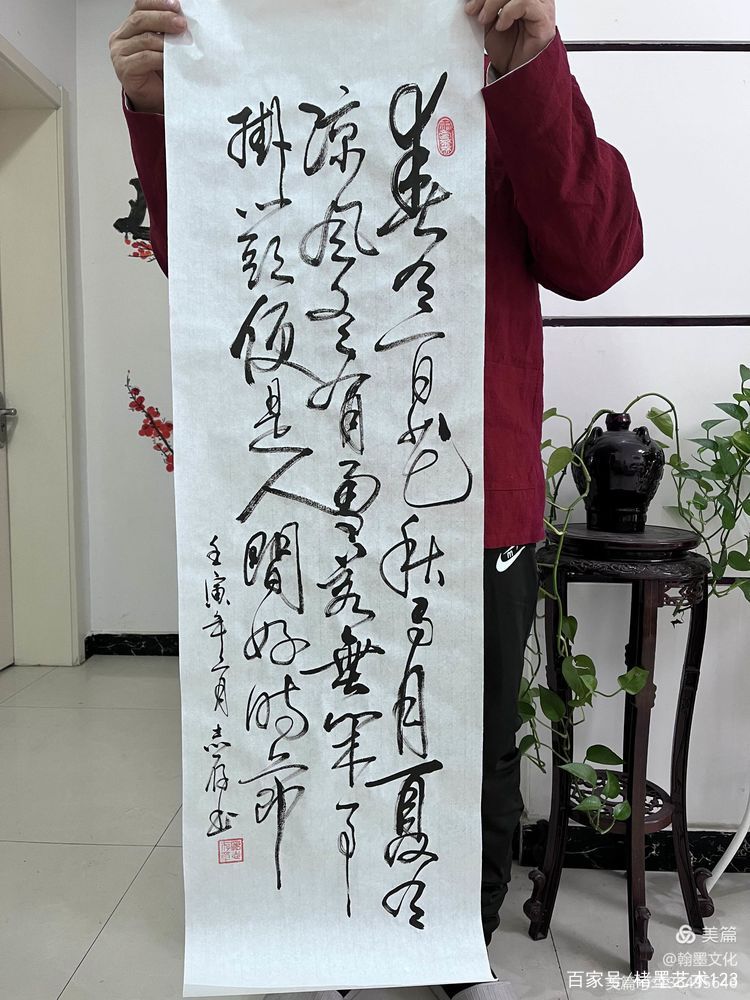 春有百花秋有月夏有
凉風冬有雪若無閑事
掛心頭便是人間好時節
壬寅年二月志书
美篇
@翰墨文化
百家号/楮墨艺术123